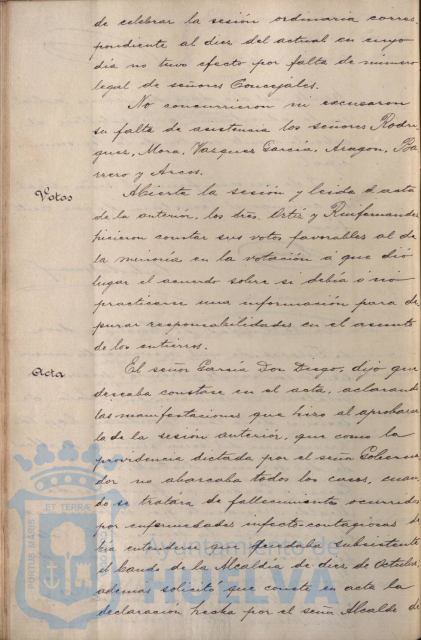 de celebrar la sesión ordinaria corres-
pondiente al diez del actual en cuyo
dia no tuvo efecto por falta de numero
legal de señores Concejales.
No concurrieron ni excusaron
su falta de asistencia los señores Rodri
guez, Mora, Vazquez Garcia, Aragon, Ba
rrero y Arcos.
Votos
Abierta la sesión y leida el acta
de la anterior, los sres. Ortiz y Ruifernandez
hicieron constar sus votos favorables al de
la minoria en la votación á que dió
lugar el acuerdo sobre si debía ó no
practicarse una información para de
purar responsabilidades en el asunto
de los entierros.
Acta
El señor García Don Diego, dijo que
deseaba constase en el acta, aclarando
las manifestaciones que hizo al aprobarse
la de la sesión anterior, que como la
providencia dictada por el señor Goberna
dor no abarcaba todos los casos, cuan
do se tratara de fallecimientos ocurridos
por enfermedades infecto-contagiosas de
bia entenderse que quedaba subsistente
el bando de la Alcaldia de diez de Octubre,
además solicitó que conste en acta la
declaración hecha por el señor Alcalde de
PORTUS MARIS
ET TERRÆ
Ayuntamiento de
HUELVA